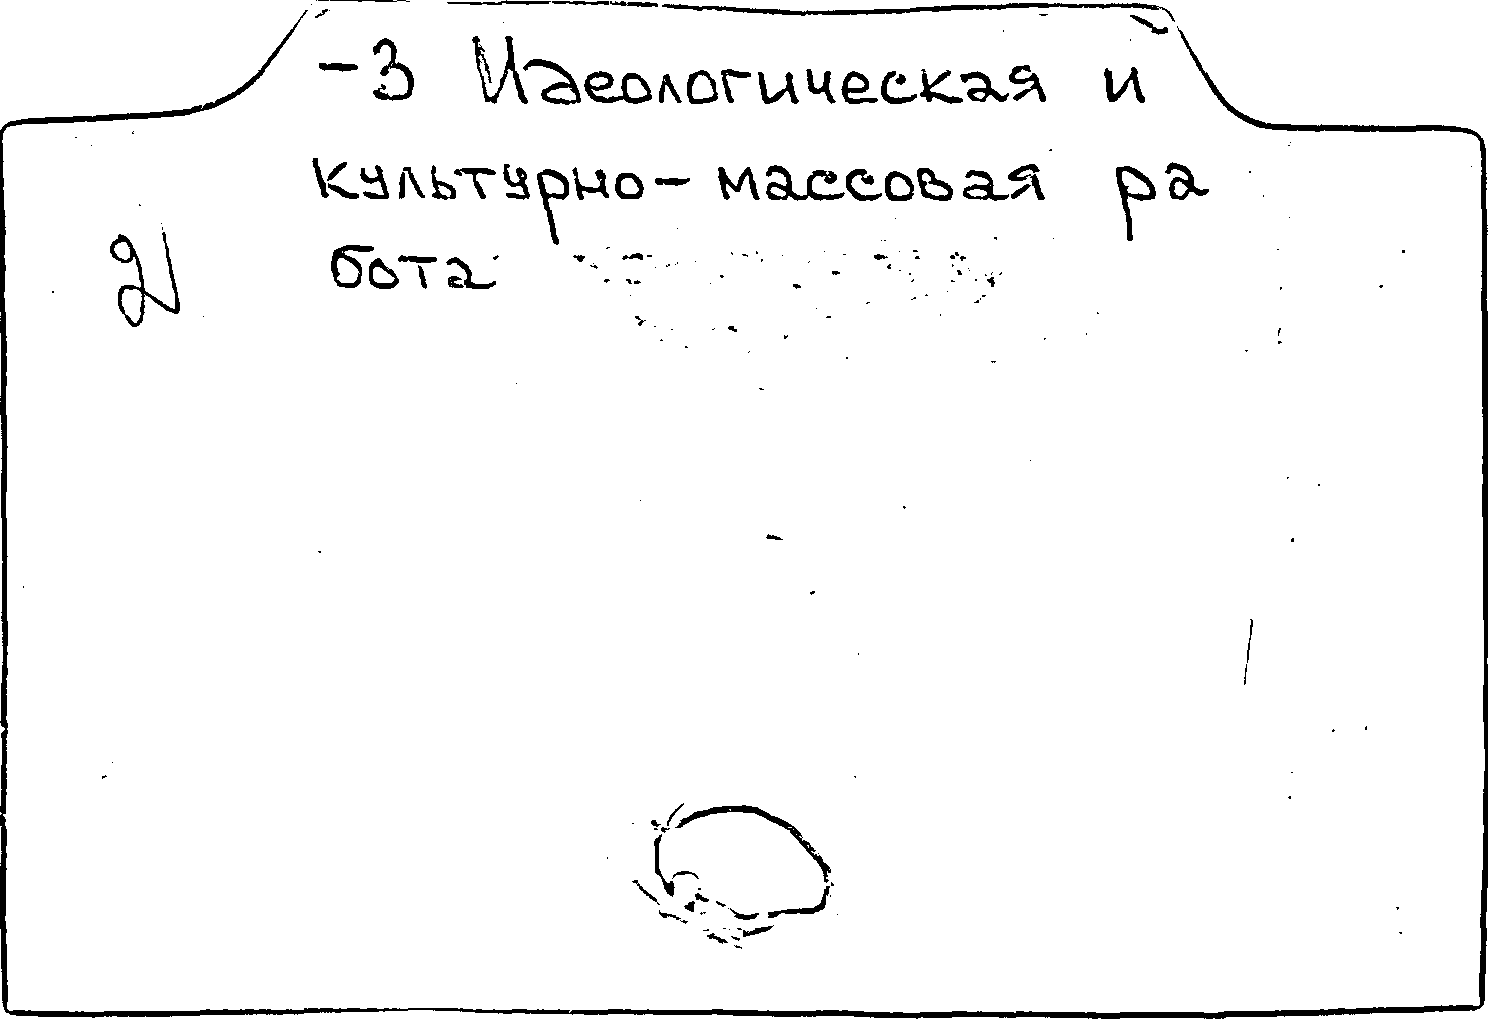 -3 Идеологическая и
культурно-массовая ра
бота